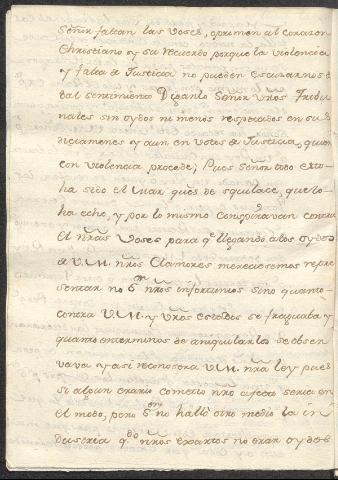 Señor faltan las voses, oprimen al corazon
Christiano y su recuerdo porque la violencia
y falta de Justicia no pueden escusarnos e
tal sentimiento Diganlo Señor vños Tribu
nales sin oydos ni menos respetados en sus
dictamenes y aun en votos de Justicia, quien
con violencia procede; Pues Señor todo esto
ha sido el Marques de squilace, quelo
ha echo, y por lo mismo conspiravan contra
el nras Voses para q llegando alos oydos
de V.M. nros Clamores mereciesemos repre
sentar no solo nros infortunios sino quanto
contra V.M. y vros estados se fraguaba y
quanto enterminos de aniquilarlos se obser
vava y asi reconosera V.M. nra ley pues
si algun erario cometio nro afecto seria en
el modo, pero no hallo otro medio la in
dustria q nros exartos no eran oydos